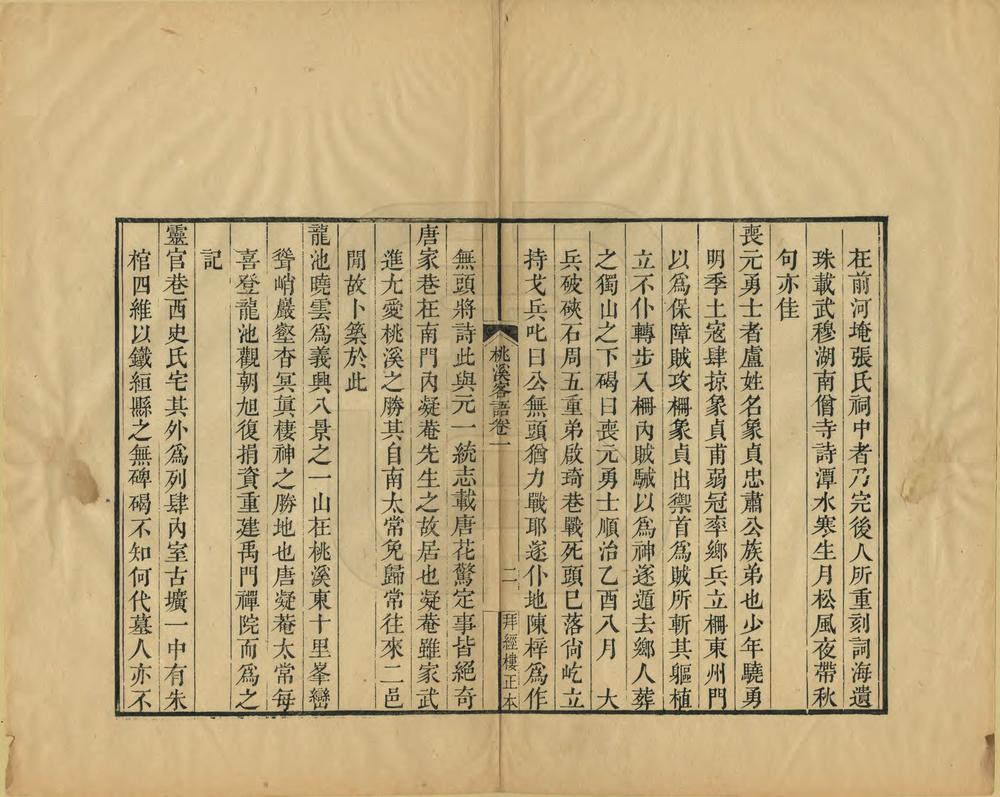 在前河埯張氏祠中者乃完後人所重刻詞海遺
珠載武穆湖南僧寺詩潭水寒生月松風夜帶秋
句亦佳
喪元勇士者盧姓名象貞忠肅公族弟也少年驍勇
明季土寇肆掠象貞甫弱冠率鄉兵立柵東州門
以爲保障賊攻柵象貞出禦首爲賊所斬其軀植
立不仆轉步入柵內賊駴以爲神遂遁去鄉人葬
之獨山之下碣曰喪元勇士順治乙酉八月　大
兵破硤石周五重弟啟琦巷戰死頭已落尙屹立
持戈兵叱曰公無頭猶力戰耶遂仆地陳梓爲作
桃溪客語卷一
二
拜經樓正本
無頭將詩此與元一統志載唐花驚定事皆絕奇
唐家巷在南門內凝菴先生之故居也凝菴雖家武
進尢愛桃溪之勝其自南太常免歸常往來二邑
閒故卜築於此
龍池曉雲爲義興八景之一山在桃溪東十里峯巒
聳峭巖壑杳冥眞棲神之勝地也唐凝菴太常每
喜登龍池觀朝旭復捐資重建禹門禪院而爲之
記
靈官巷西史氏宅其外爲列肆內室古壙一中有朱
棺四維以鐵絙縣之無碑碣不知何代墓人亦不